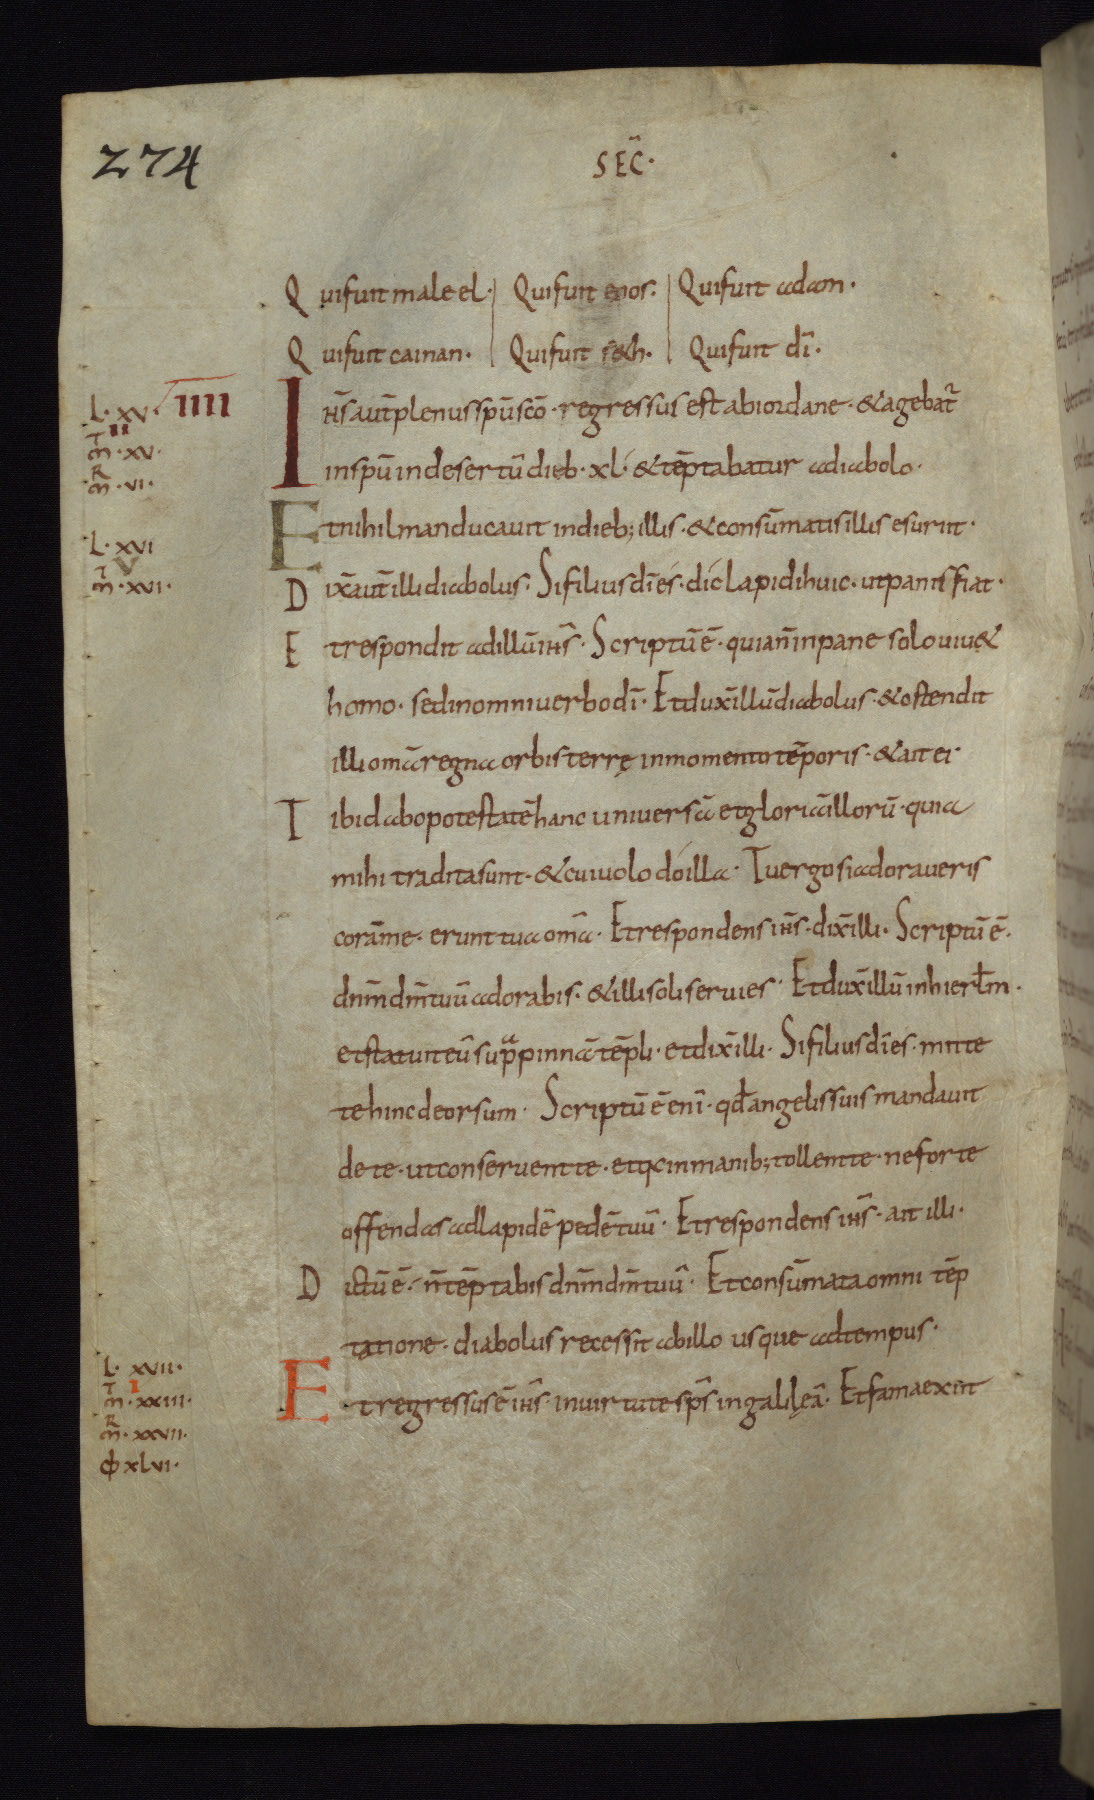 274
SEC̄·
Qui fuit maleel· Qui fuit enos· Qui fuit adam·
Qui fuit cainan· Qui fuit s&h· Qui fuit dī·
L· xv· IIII
II
T
m̄· xv·
R
m̄· vi·
Ih̄s aut̄ plenus spū scō· regressus est ab iordane· & agebat̄
in spū in desertū dieb· xl· & tēptabatur a diabolo·
L· xvi
V
T
m̄· xvi·
Et nihil manducauit in dieb; illis· & consūmatis illis esuriit·
Dix̄ aut̄ illi diabolus· Si filius dī es· dic lapidi huic· ut panis fiat·
Et respondit ad illū ih̄s· Scriptū ē· quia n̄ in pane solo uiu&
homo· sed in omni uerbo dī· Et dux̄ illū diabolus· & ostendit
illi om̄a regna orbis terrę in momento tēporis· & ait ei·
Tibi dabo potestatē hanc uniuersā et gloriā illorū· quia
mihi tradita sunt· & cui uolo do illa· Tu ergo si adoraueris
corā me· erunt tua om̄a· Et respondens ih̄s· dix̄ illi· Scriptū ē·
dn̄m dm̄ tuū adorabis· & illi soli seruies· Et dux̄ illū in hierłm·
et statuit eū supra pinnā tēpli· et dix̄ illi· Si filius dī es· mitte
te hinc deorsum· Scriptū ē enī· qđ angelis suis mandauit
de te· ut conseruent te· et q̄ in manib; tollent te· ne forte
offendas ad lapidē pedē tuū· Et respondens ih̄s· ait illi·
Dictū ē· n̄ tēptabis dn̄m dm̄ tuū· Et consūmata omni tēp
tatione· diabolus recessit ab illo usque ad tempus·
L· xvii·
I
T
m̄· xxiii·
R
m̄· xxvii·
ϕ xlvi·
Et regressus ē ih̄s· in uirtute sps̄ in galileā· Et fama exiit